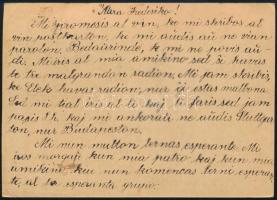 Kara Frederiko!
Mi promesis al vin, ke mi skribos al
vin poŝtkarton, ke mi aŭdis aŭ ne vian
parolon. Bedaŭrinde, ke mi ne povis aŭ-
di. Mi iris al mia amikino sed ŝi havas
tre malgrandan radion. Mi jam skribis,
ke ĉe havas radion, nur ĝi estas malbona.
Sed mi tial iris al ŝi, kaj ŝi jam
diris ke kaj mi ankoraŭ ne aŭdis Stuttgar-
ton, nur Budapeston.
Mi nun multon lernas esperante. Mi
iros morgaŭ kun mia patro kaj kun mia
amikino, kiu nun komencas lerni esperan-
te, al la esperanta grupo.